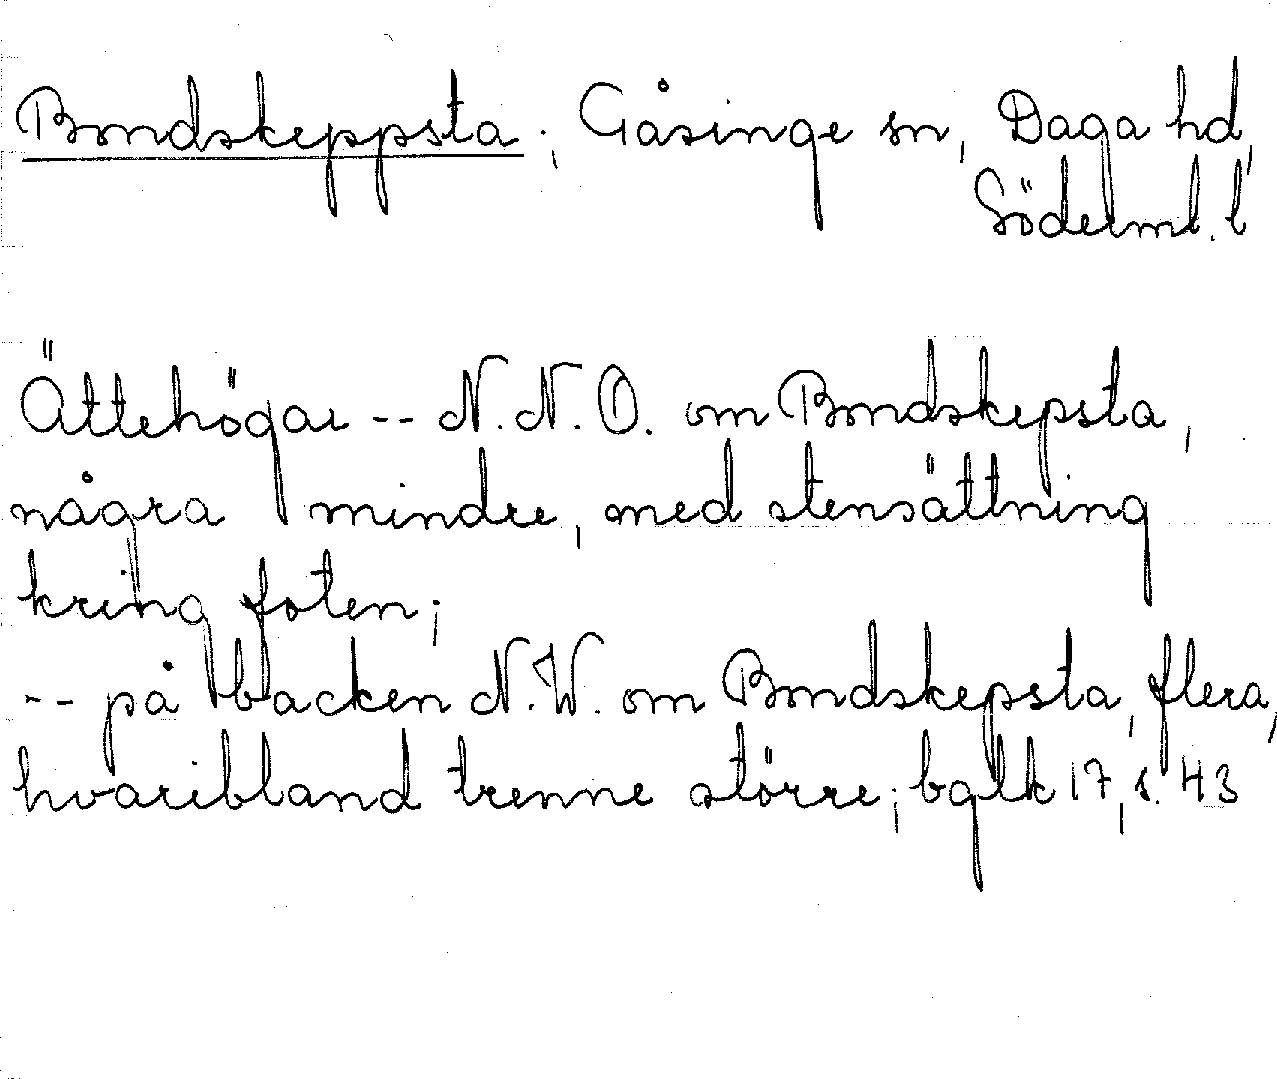 Bondskeppsta; Gåsinge sn, Daga hd,
Söderml. l
Ättehögar -- N.N.O. om Bondskepsta,
några mindre, med stensättning
kring foten;
-- på backen N.W. om Bondskepsta, flera,
hvaribland trenne större; balk 17, s. 43